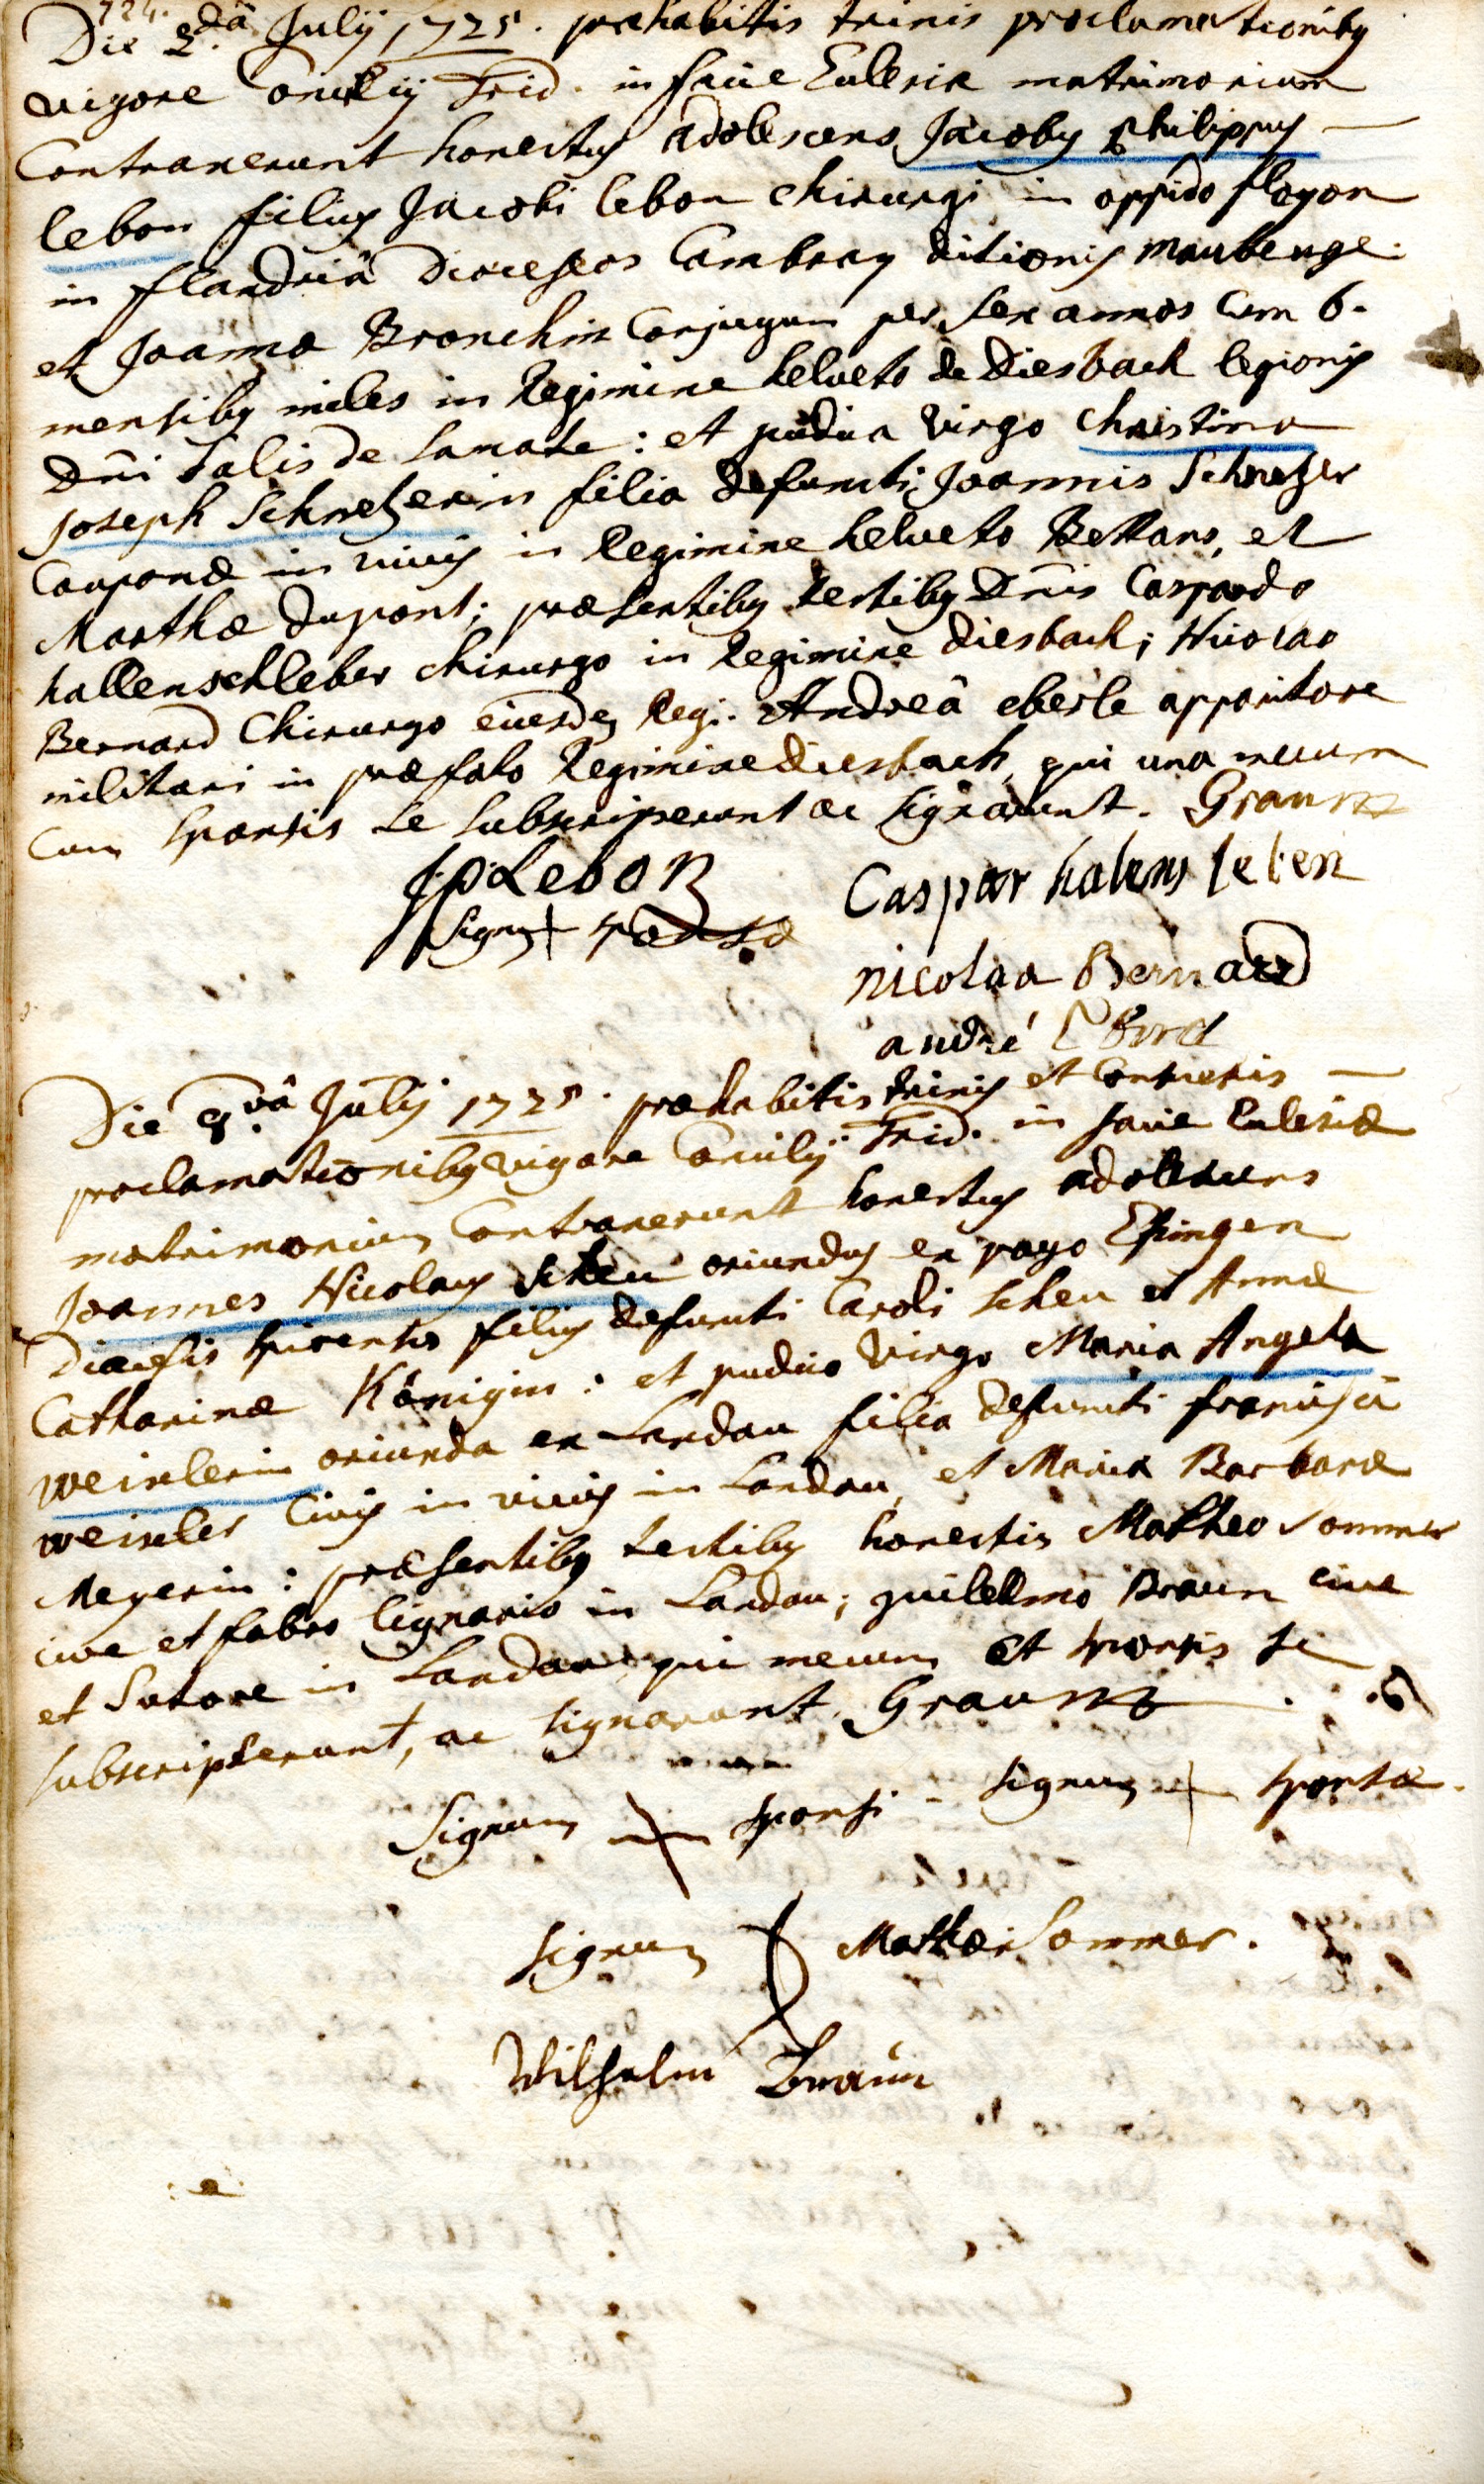 724.
Die 2.dâ Julij 1725. præhabitis trinis proclamationibq
vigore Concilij Trid. in facie Ecclesiæ matrimonium
Contraxerunt honestus adolescens Jacobq Philippus —
lebon filius Jacobi lebon chirurgi in oppido floyon
in flandriâ Dioceseos Cambray ditionis maubeuge.
et Joanna Bronchin Conjugum per sex annos cum 6.
mensibq miles in Regimine helveto de Diesbach legionis
Dni Salis de Samade: et pudica virgo Christina
Joseph Schnetzerin filia defuncti Joannis Schnetzer
Cauponæ in vivis in Regimine helveto Bettans, et
Marthæ dupont; præsentibq testibq Dnis Casparo
hallenschleber chirurgo in Regimine diesbach; Nicolao
Bernard Chirurgo eiusdem Regi. Andreâ eberle apparitore
militari in præfato Regimine diesbach, qui una mecum
Cum sponsis se subscripserunt ac signarunt. Graunz
JPLebon
Signum + sponsæ
Caspar halensleben
nicolaa Bernard
andré
Die 8.vâ Julij 1725. præhabitis trinis et Consuetis —
proclamationibq vigore Concilij Trid. in facie Ecclesiæ
matrimonium Contraxerunt honestus adolescens
Joannes Nicolaus Scheu oriundus ex pago Essingen
Diœcesis spirensis filius defuncti Caroli scheu et Annæ
Catharinæ Königin: et pudica Virgo Maria Angela
weinlerin oriunda ex Landau filia defuncti francisci
weinler Civis in vivis in Landau, et Mariæ Barbaræ
Meyerin: præsentibq testibq honestis Matheo Sommer
cive et fabro lignario in Landau; guilelmo Braun cive
et Sutore in Landau qui mecum et sponsis se
subscripserunt, ac signarunt. Graunz
Signum + sponsi - signum + sponsæ.
signum Mathæi Sommer.
Wilhelm Braun